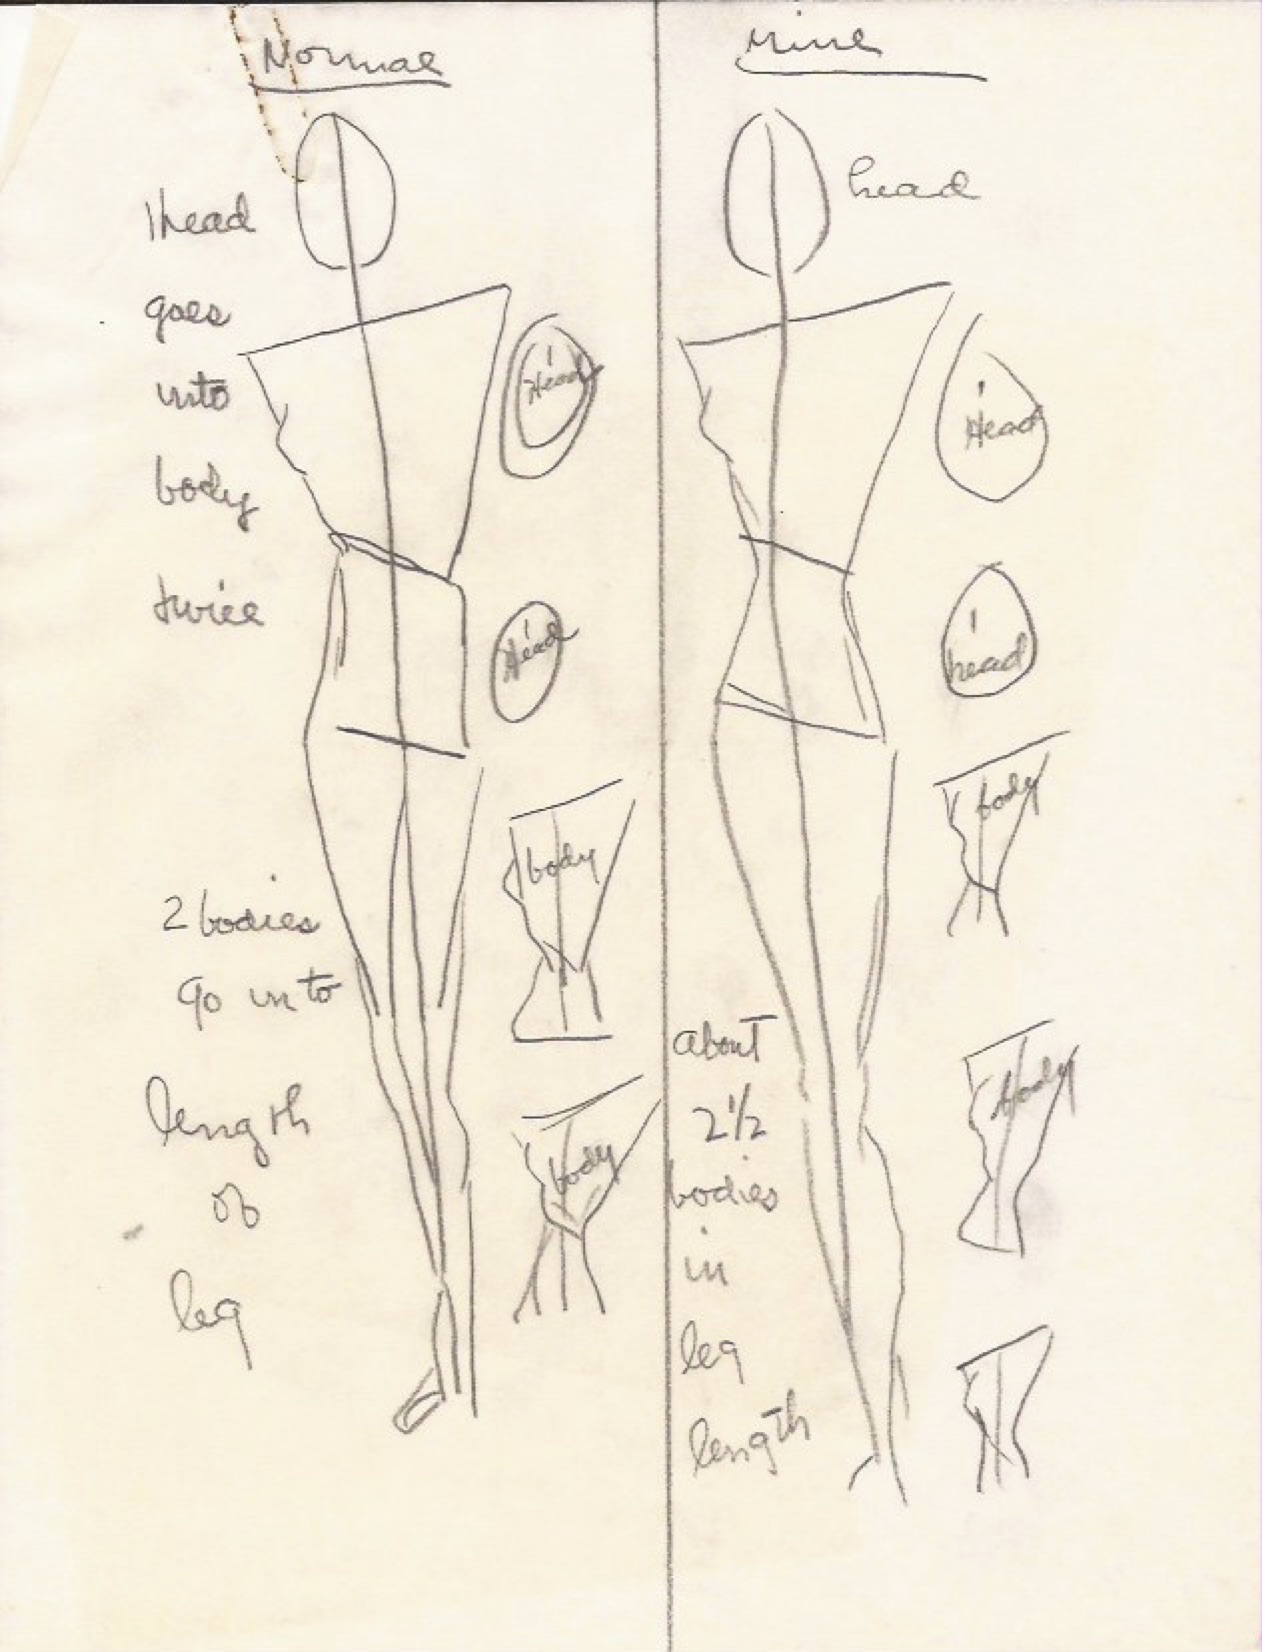 Normal
1 head
goes
into
body
twice
1
Head
1
Head
body
2 bodies
go into
length
of
leg
body
Mine
head
1
Head
1
head
body
about
2 1/2
bodies
in
leg
length
body